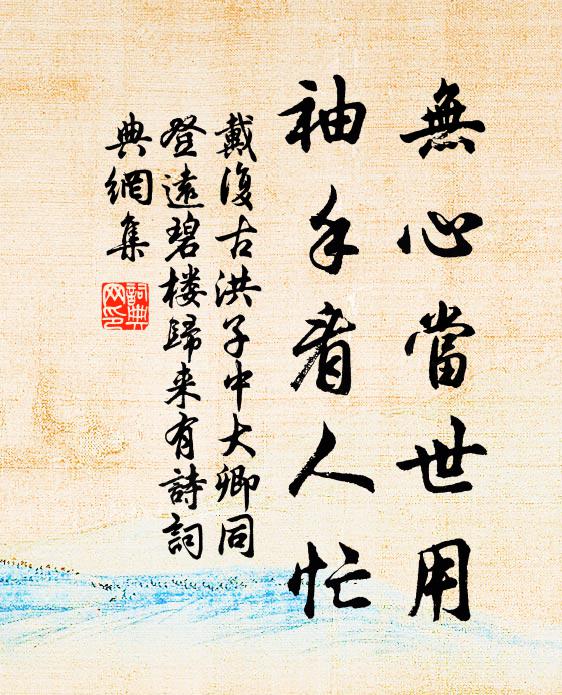 無心當世用
袖手看人忙
戴復古洪子中大卿同
登遠碧楼歸来有詩詞
典網集
詞典
网印